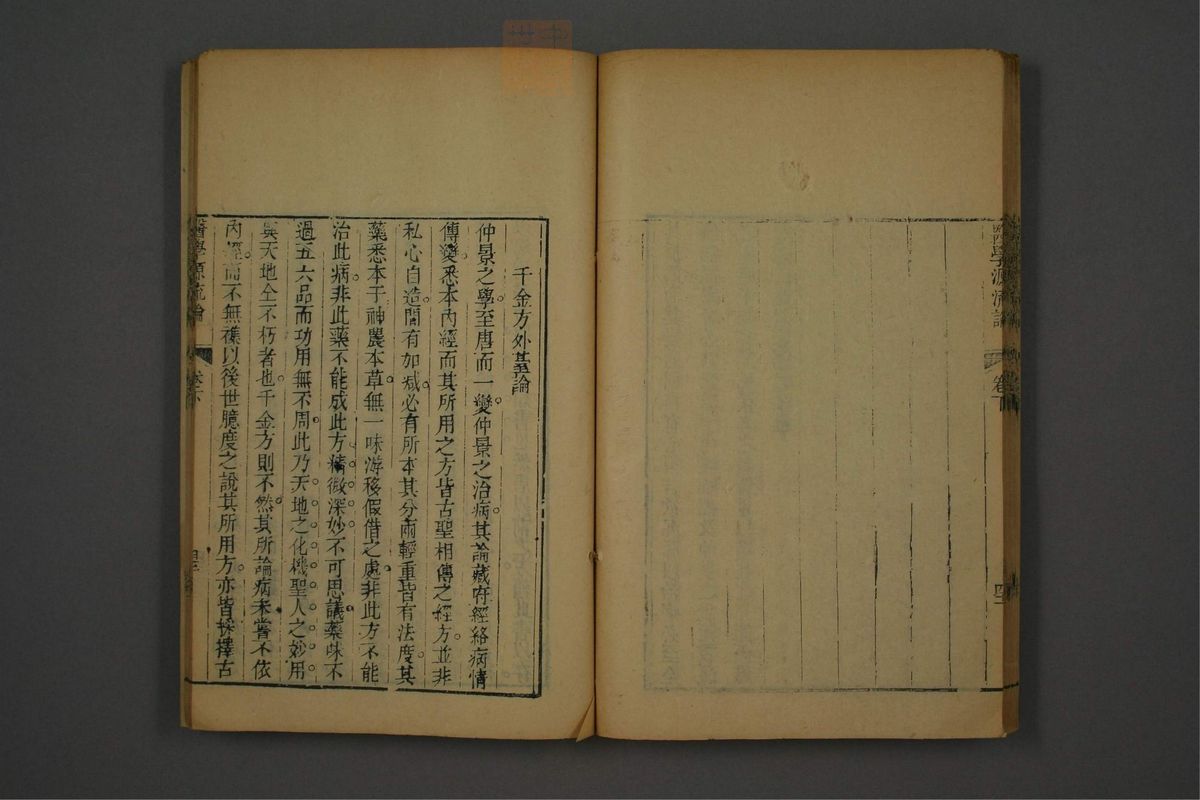 醫學源流論 卷下
千金方外臺論
仲景之學至唐而一變仲景之治病其論藏府經絡病情
傳變悉本內經而其所用之方皆古聖相傳之經方並非
私心自造間有加減必有所本其分兩輕重皆有法度其
藥悉本于神農本草無一味游移假借之處非此方不能
治此病非此藥不能成此方精微深妙不可思議藥味不
過五六品而功用無不周此乃天地之化機聖人之妙用
與天地仝不朽者也千金方則不然其所論病未嘗不依
內經而不無襍以後世臆度之說其所用方亦皆採擇古
醫學源流論 卷下